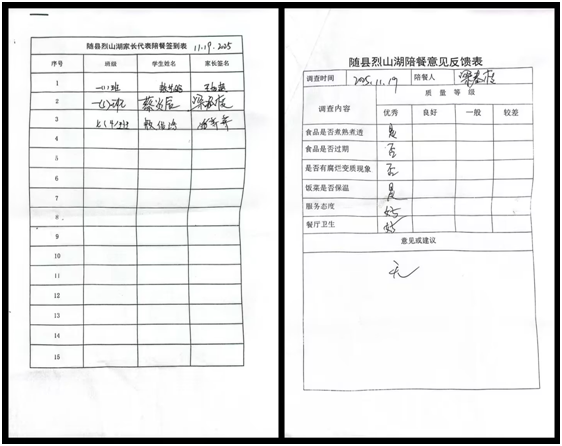 随县烈山湖家长代表陪餐签到表 11.19.2025
序号 班级 学生姓名 家长签名
1 一(1)班
2 一(2)班 蔡炎辰
3
4
5
6
7
8
9
10
11
12
13
14
15
随县烈山湖陪餐意见反馈表
调查时间 2025.11.19 陪餐人
调查内容 质量等级
优秀 良好 一般 较差
食品是否煮熟煮透 是
食品是否过期 否
是否有腐烂变质现象 否
饭菜是否保温 是
服务态度 好
餐厅卫生 好
意见或建议
无